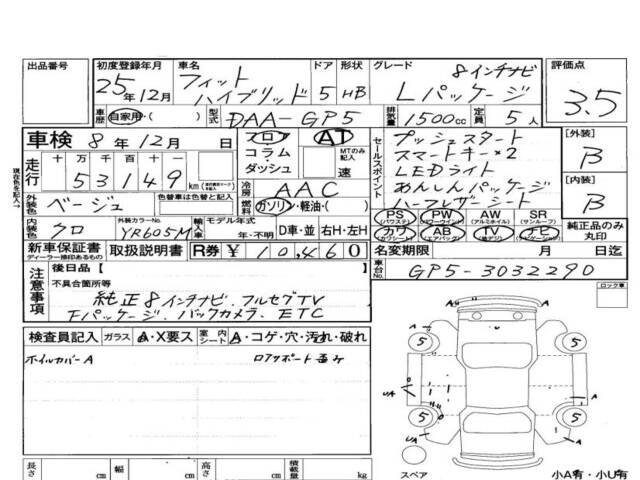 出品番号
初度登録年月 25年12月
車名 フィットハイブリッド
ドア 形状 5 HB
グレード 8インチナビ Lパッケージ
評価点 3.5
車歴 自家用・( )
型式 DAA-GP5
排気量 1500cc
定員 5人
車検 8年12月 日
フロア コラム・ダッシュ
AT
MTのみ記入 速
セールスポイント
プッシュスタート
スマートキー×2
LEDライト
あんしんパッケージ
ハーフレザーシート
[外装] B
[内装] B
現在色を記入して下さい→
走行 十万千百十 53149 km
冷房 AAC
外装色 ベージュ
色替車は色替と記入
燃料 ガソリン・軽油・( )
PS (パワステ) PW (パワーウィンド) AW (アルミホイル) SR (サンルーフ)
カワ (カワシート) AB (エアバッグ) TV (地デジ) ナビ (ナビゲーション)
純正品のみ丸印
内装色 クロ
外装カラーNo. YR605M
輸入車 モデル年式 年・不明 D車・並 右H・左H
新車保証書 ディーラー捺印あるもの
取扱説明書
R券 ¥ 10,460
名変期限 月 日迄
車台No. GP5-3032290
注意事項
後日品【 】
不具合箇所等
純正8インチナビ.フルセグTV
Fパッケージ.バックカメラ.ETC
ロック車
検査員記入 ガラス A・X要ス 室内シート A・コゲ・穴・汚れ・破れ
ホイルカバーA
ロアサポート歪み
5
5
5
5
A
A
A
A
UA
UA
スペア
小A有・小U有
長さ cm 幅 cm 高さ cm 積載量 kg